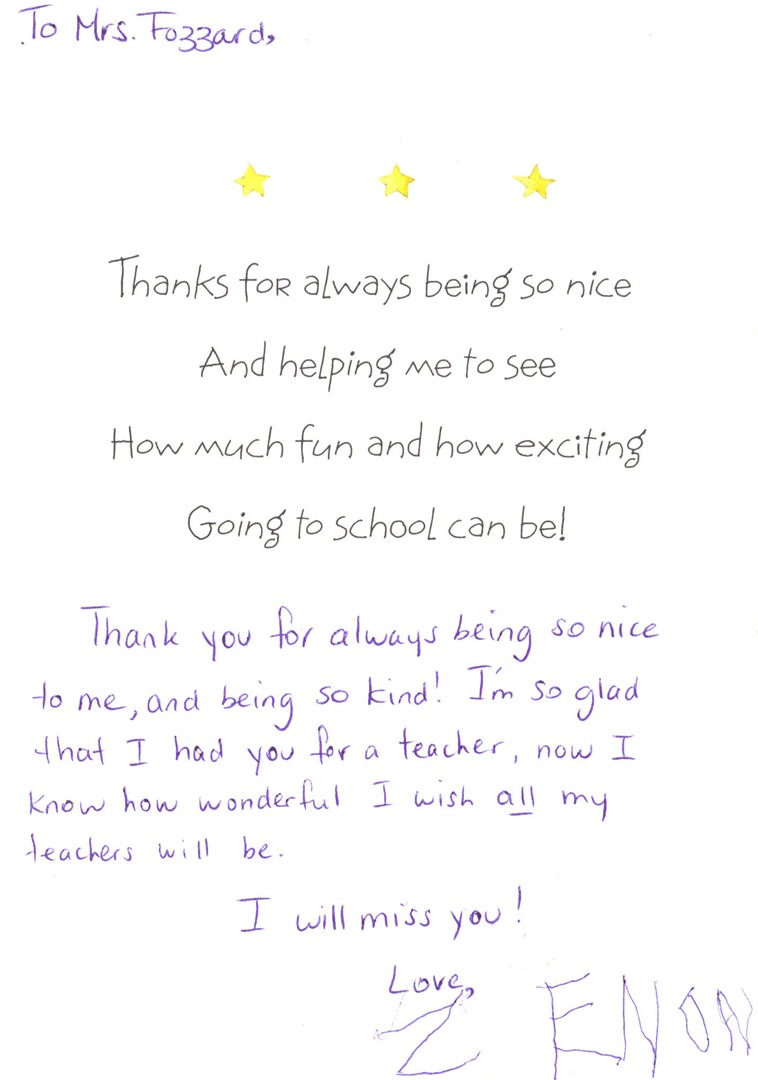 To Mrs. Fozzard,
Thanks for always being so nice
And helping me to see
How much fun and how exciting
Going to school can be!
Thank you for always being so nice
to me, and being so kind! I'm so glad
that I had you for a teacher, now I
know how wonderful I wish all my
teachers will be.
I will miss you!
Love,
ZENON